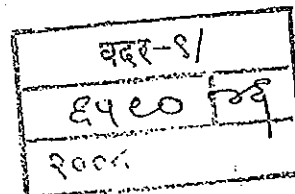 वदर-९/
६५९०
२००८